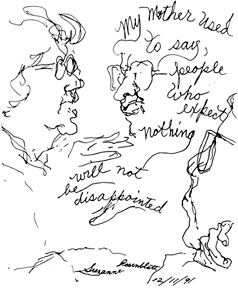 My Mother used
to say,
people
who
expect
nothing
will not
be
disappointed
Suzanne Rosenblatt
12/11/91